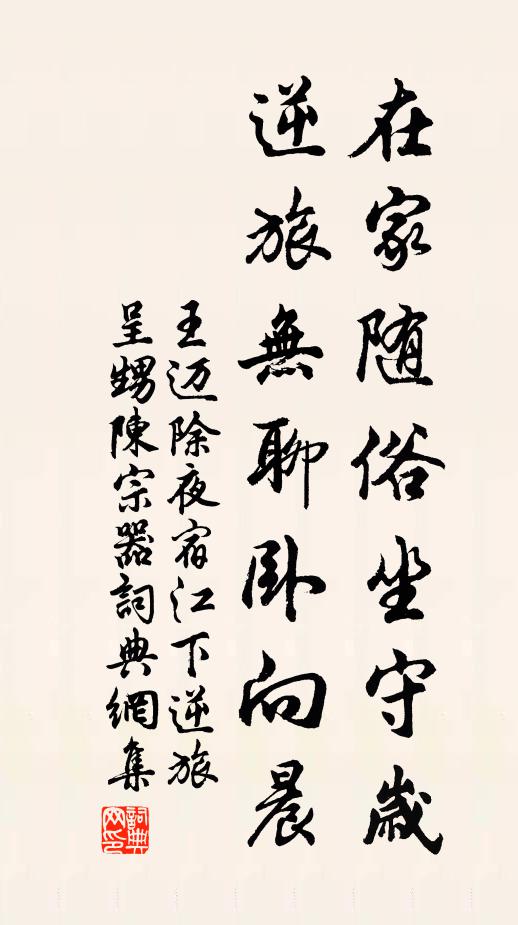 在家随俗坐守歲
逆旅無聊卧向晨
王迈除夜宿江下逆旅
呈甥陳宗器詞典網集
詞典网印